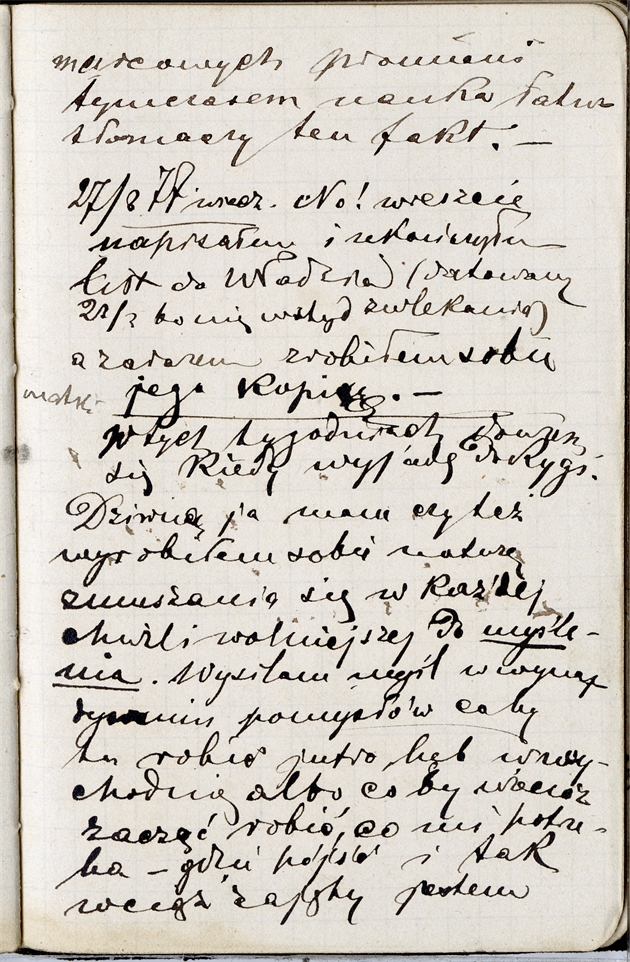 marcowych promieni
tymczasem nauka łatwo
tłomaczy ten fakt. —
27/8 78 wiecz. No! wreszcie
napisałem i zakończyłem
list do Władzia (datowany
bo mię wstyd zwlekania)
a zarazem zrobiłem sobie
jego kopię. —
w tych tygodniach dowiem
się kiedy wyjadę do Rygi.
Dziwną ja mam czy też
wyrobiłem sobie naturę
zmuszania się w każdej
chwili wolniejszej do myśle-
nia. Wysilam myśl w wynaj
dywaniu pomysłów coby
tu robić jutro bąb
chodnię albo co by wieczór
zacząć robić, co mi potrze-
ba — gdzie pójść i tak
wciąż zajęty jestem